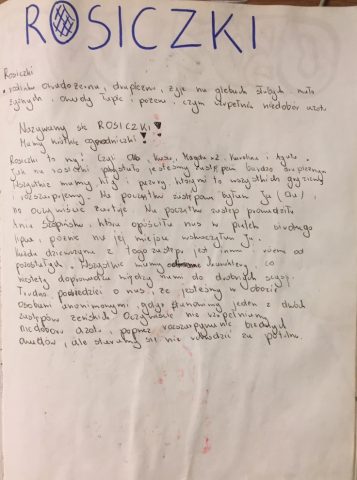 ROSICZKI
Rosiczki
- roślina owadożerna, drapieżna, żyje na glebach słabych, mało
żyznych, owady łapie i pożera, czym uzupełnia niedobór azotu.
Nazywamy się ROSICZKI!
Mamy krótkie
Rosiczki to my! Czyli Ola, Kasia, Magda x2, Karolina i Agata.
Jak na rosiczki przystało jesteśmy zastępem bardzo drapieżnym.
Wszystkie mamy kły i pazury, którymi to wszystkich gryziemy
i rozszarpujemy. Na początku zastępem byłam ja (Ola),
no oczywiście żartuję. Na początku zastęp prowadziła
Ania Stopińska, która opuściła nas w pięknych
lipca, później na jej miejsce wskoczyłam ja.
Każda dziewczyna z tego zastępu jest inna, różna od
pozostałych. Wszystkie mamy charaktery, co
niestety doprowadza między nami do drobnych spięć.
Trudno powiedzieć o nas, że jesteśmy w obozie
osobami anonimowymi, gdyż stanowimy jeden z dwóch
zastępów żeńskich. Oczywiście nie uzupełniamy
niedoboru azotu, poprzez rozszarpywanie biednych
owadów, ale staramy się nie odchodzić za